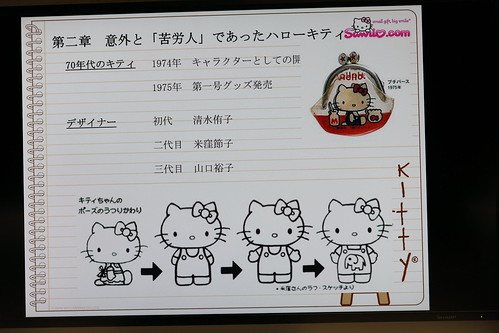 第二章 意外と「苦労人」であったハローキティ
small gift big smile
Sanrio.com
70年代のキティ 1974年 キャラクターとしての誕
1975年 第一号グッズ発売
プチパース
1975年
デザイナー 初代 清水侑子
二代目 米窪節子
三代目 山口裕子
Kitty
キティちゃんの
ポーズのうつりかわり
・米窪さんのラフ・スケッチより